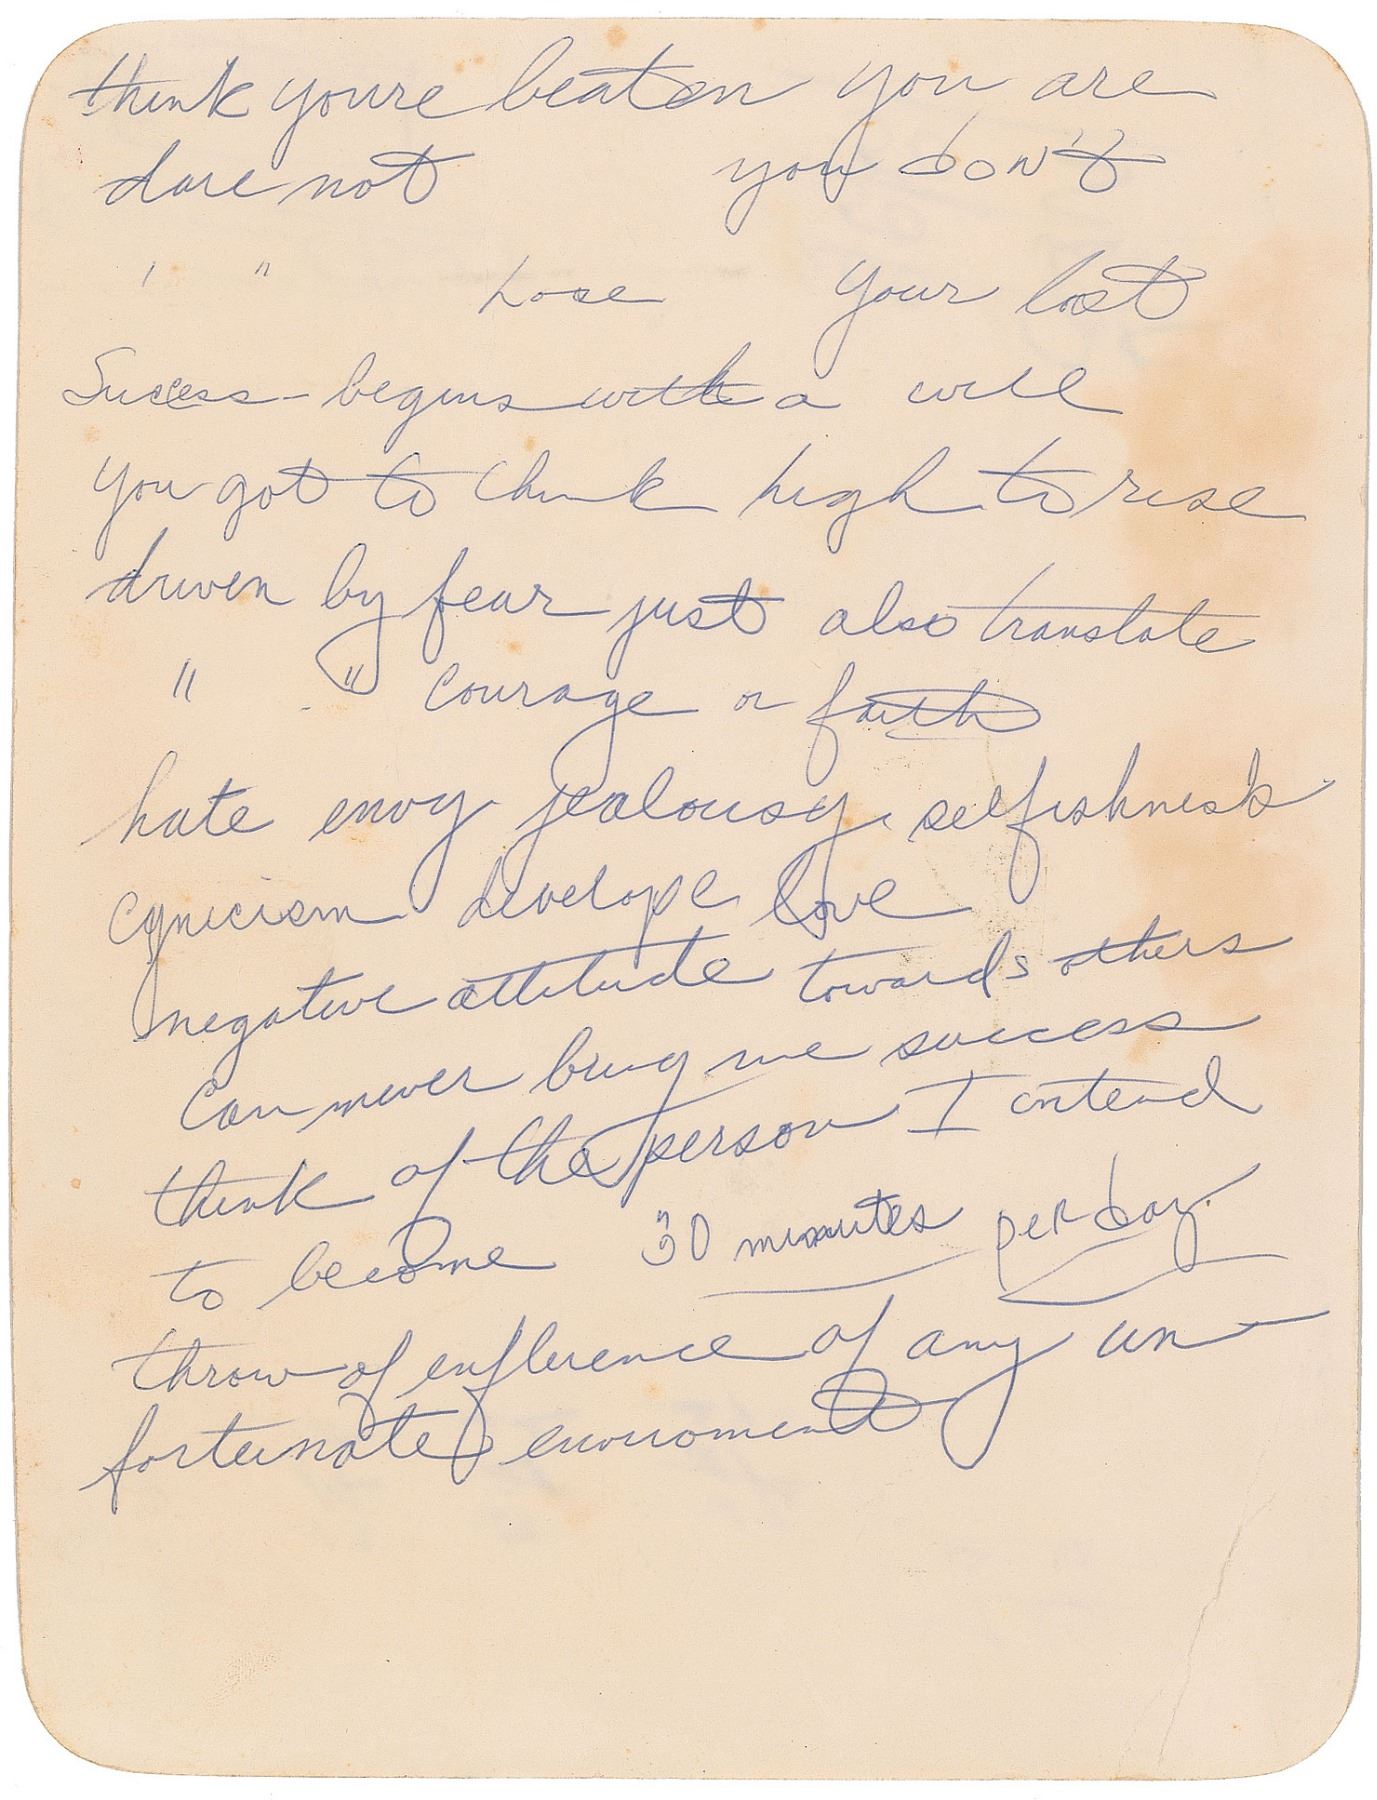 think youre beaten you are
dare not you don't
' " Lose your lost
Sucess - begins with a will
you got to think high to rise
driven by fear just also translate
" " courage or faith
hate envy jealousy selfishness
cynicism develope love
negative attitude towards others
can never bring me success
think of the person I intend
to become 30 minutes per day.
throw of enfluence of any un-
fortunate enviroment